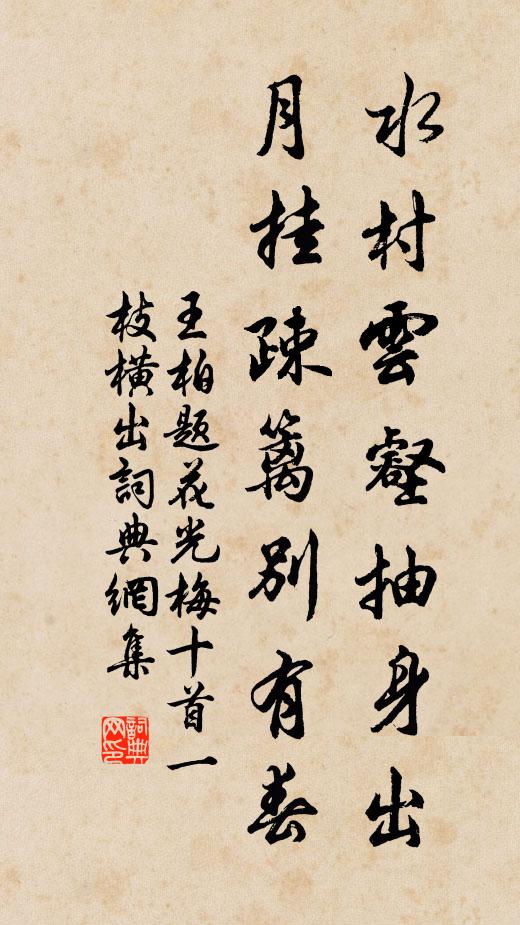 水村雲壑抽身出
月挂疎籬別有春
王柏題花光梅十首一
枝橫出詞典網集
詞典网印